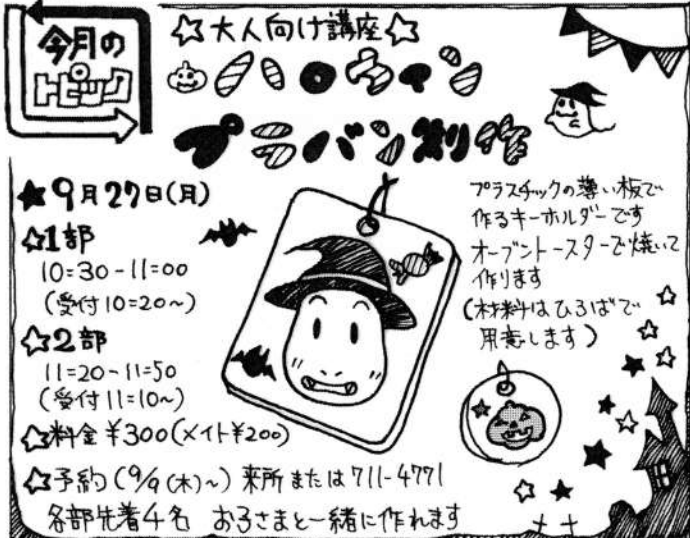 今月の
トピック
☆大人向け講座☆
ハロウィン
プラバン製作
★9月27日(月)
☆1部
10:30-11:00
(受付10:20~)
☆2部
11:20-11:50
(受付11:10~)
☆料金¥300(メイト¥200)
☆予約(9/9(木)~)来所または711-4771
各部先着4名 お子さまと一緒に作れます
プラスチックの薄い板で
作るキーホルダーです
オーブントースターで焼いて
作ります
(材料はひろばで
用意します)